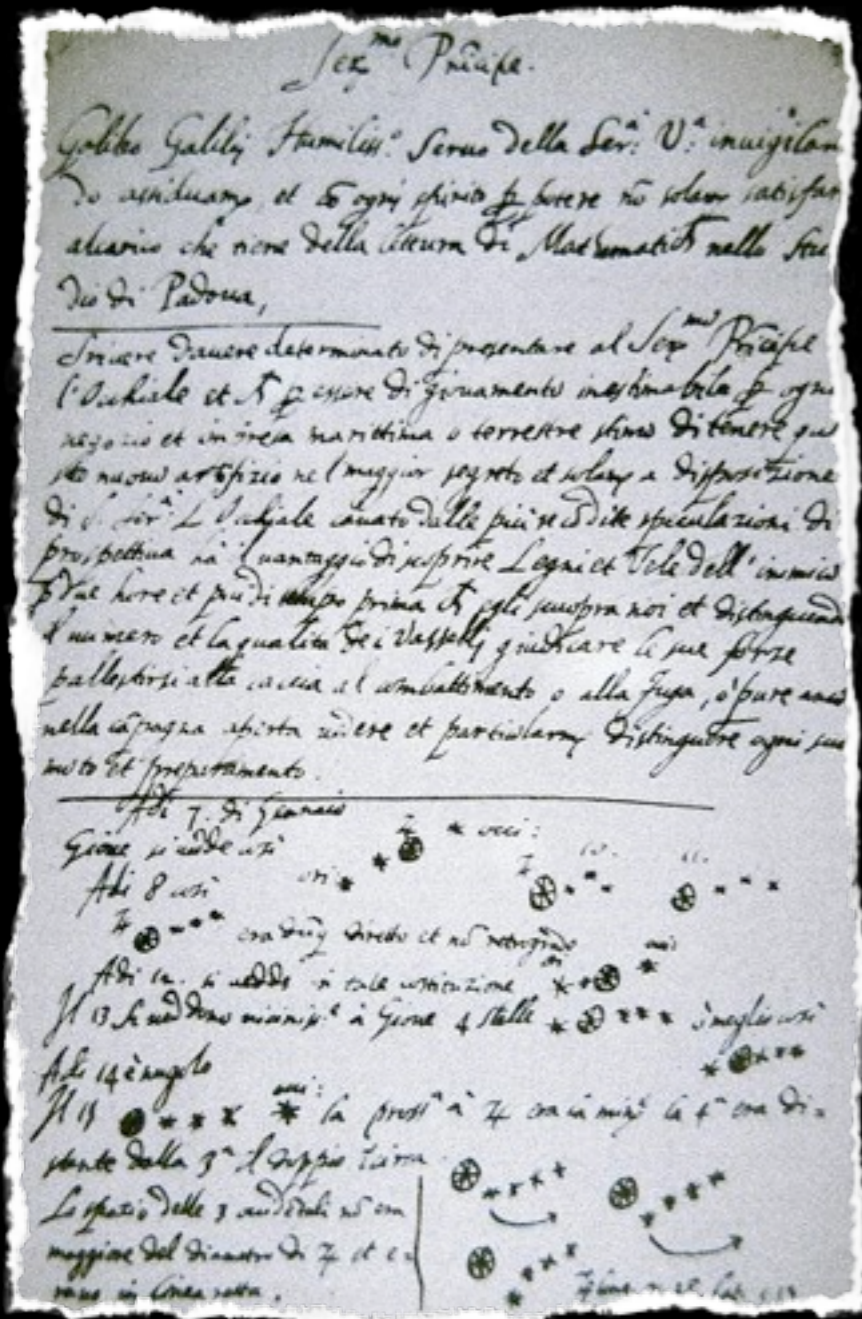 Ser.mo Prĩcipe.
Galileo Galilej Humiliss.o Seruo della Ser.a V.a inuigilan
do assiduam.e, et cõ ogni spirito p potere nõ solam.e satisfar
alcarico che tiene della lettura di Mathematich nello Stu
dio di Padoua,
Scriuere dauere determinato di presentare al Ser.mo Prĩcipe
l'Occhiale et p essere di giouamento inestimabile p ogni
negozio et impresa marittima o terrestre stimo di tenere que
sto nuouo artifizio nel maggior segreto et solam.e a disposizione
di S. Ser.a L'Occhiale cauato dalle più recõdite speculazioni di
prospettiua hà il uantaggio di scoprire Legni et Vele dell'inimico
p due hore et più di tempo prima ch egli scuopra noi et distinguendo
il numero et la qualità dei Vasselli giudicare le sue forze
pallestirsi alla caccia al combattimento o alla fuga, ò pure anco
nella cãpagna aperta uedere et particolarm.e distinguere ogni suo
moto et preparamento.
Adi 7. di Gennaio
Gioue si uede così ♃ occi:
Adi 8 così ori. ♃ 10. 11.
♃ era dũq diretto et nõ retrogrado
Adi 12. si uedde in tale costituzione occi:
Il 13 si ueddono à Gioue 4 stelle ò meglio così
Adi 14 è nugolo
Il 15 occi: la pross.a à ♃ era la min.e la 4.a era di=
stante dalla 3.a il doppio
Lo spazio delle 3 occidẽtali nõ era
maggiore del diametro di ♃ et e=
rano in linea retta.